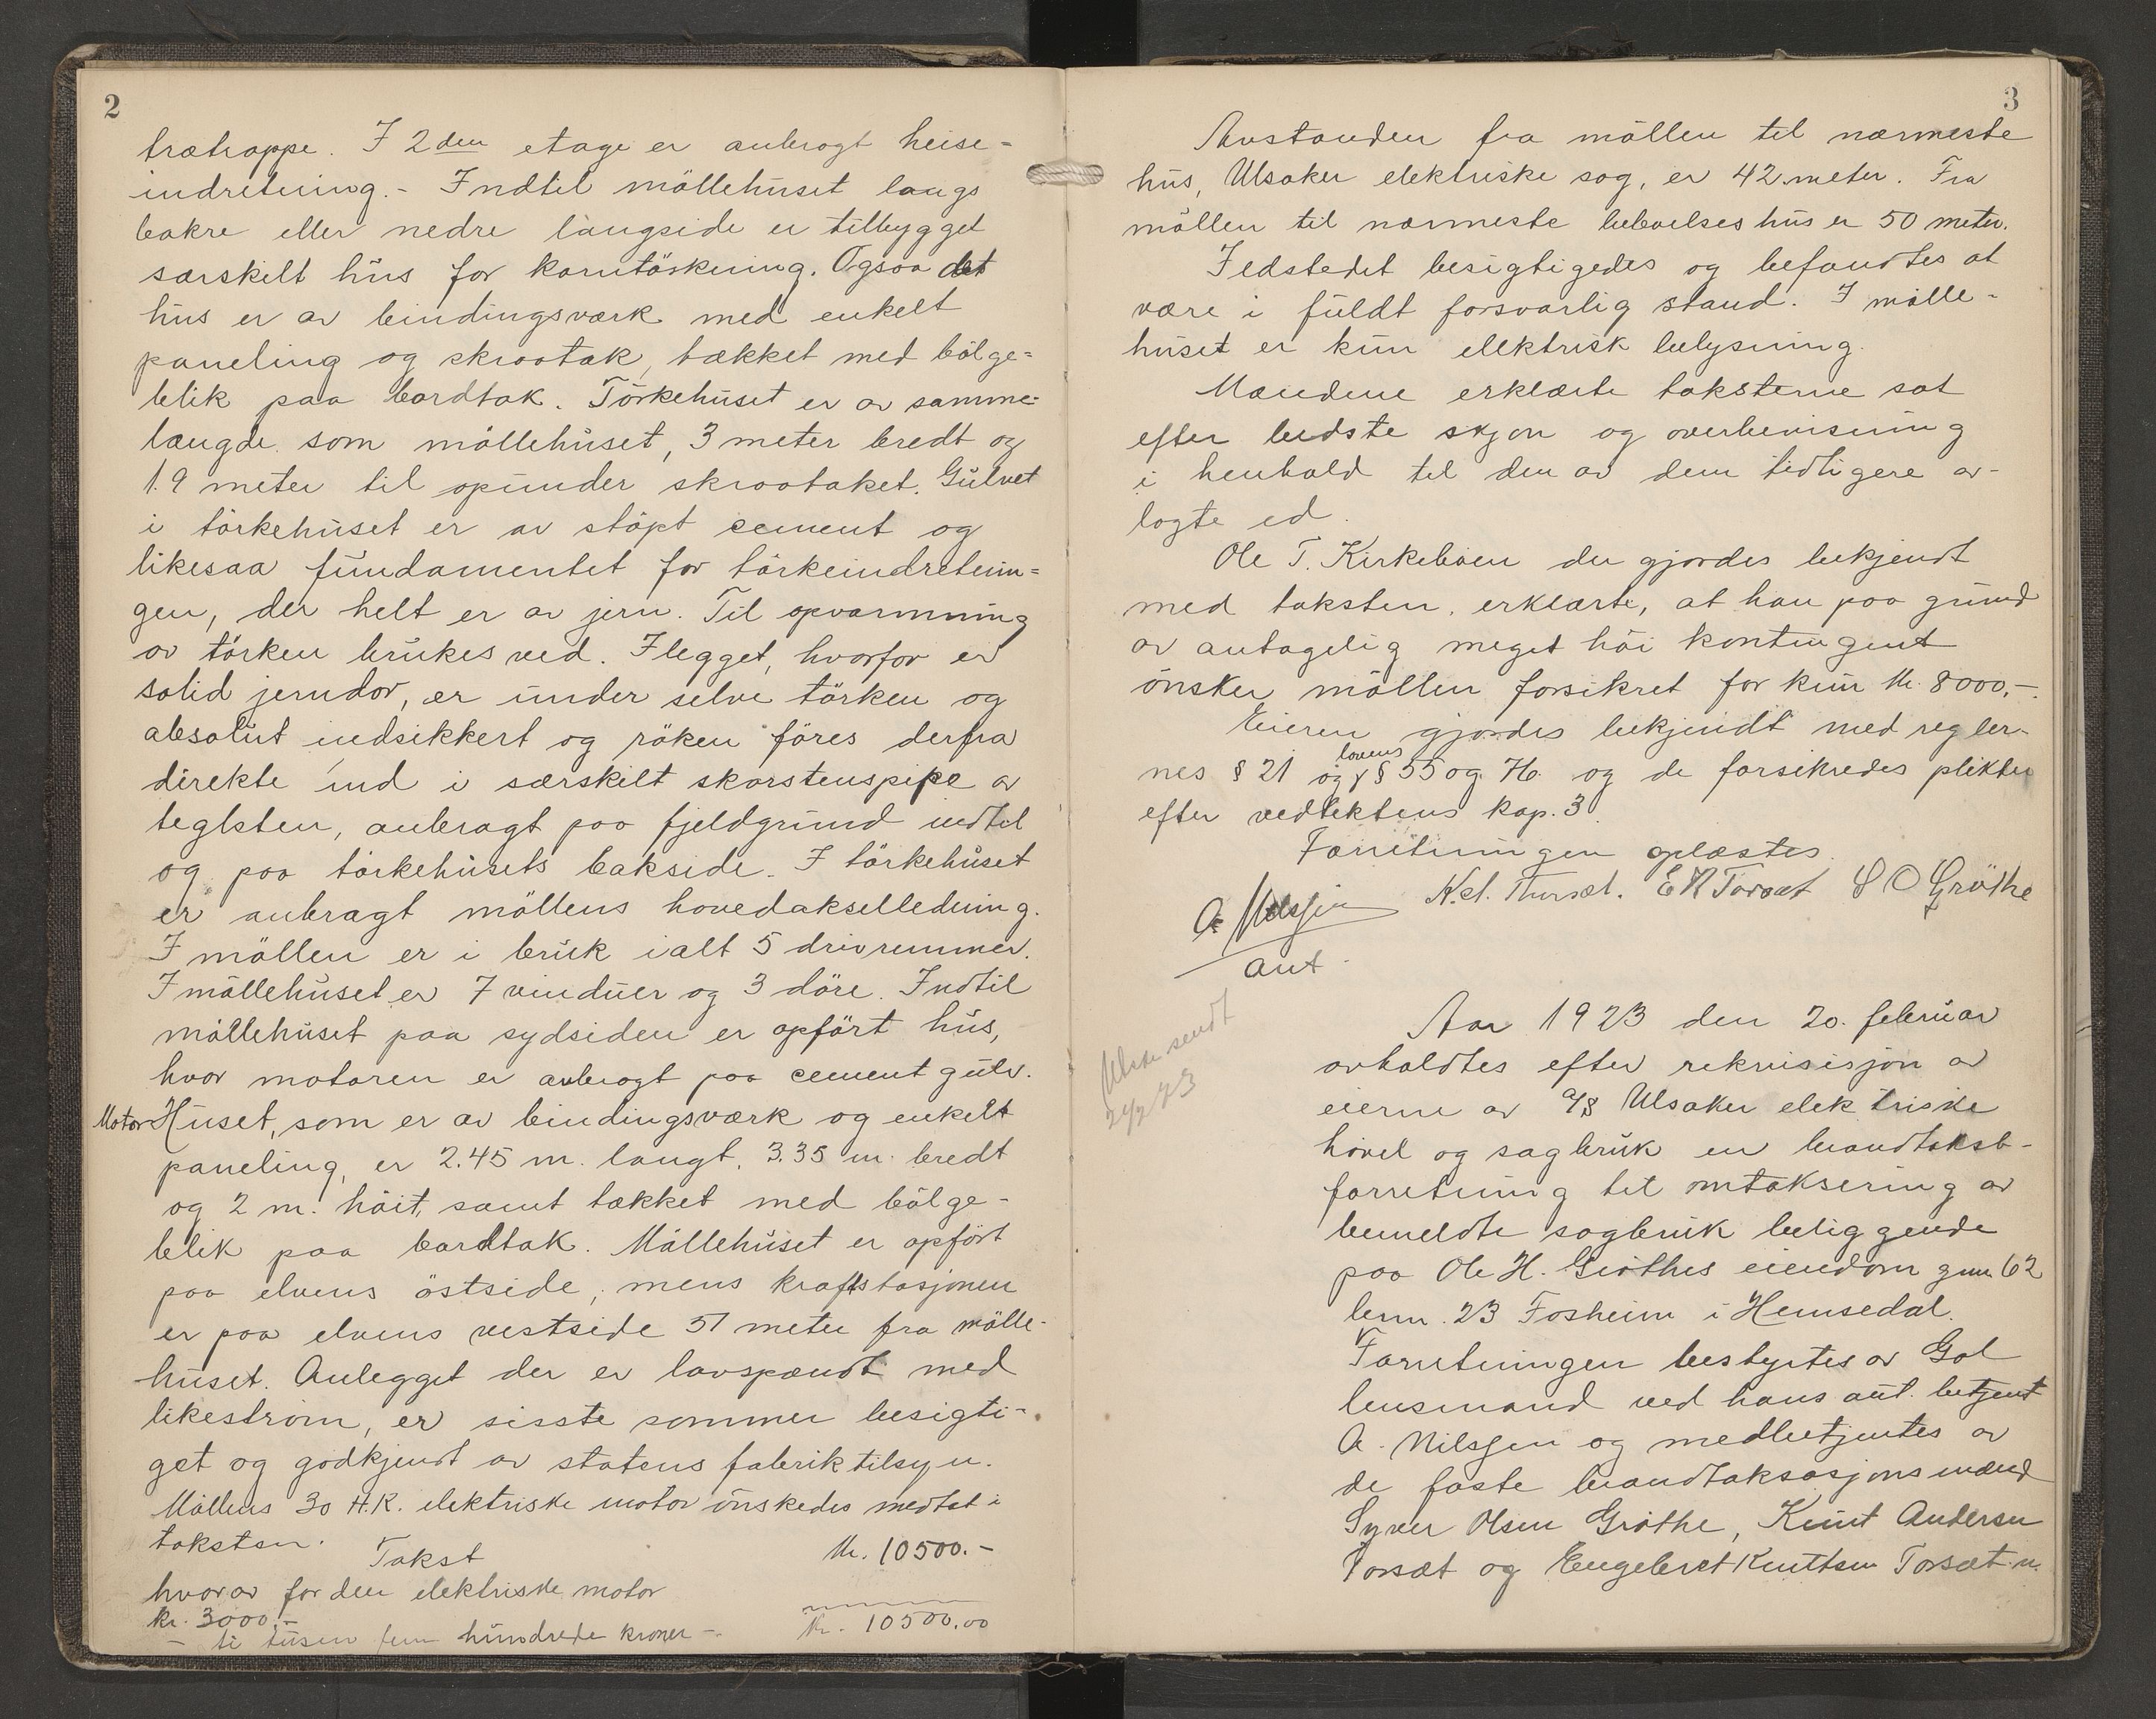 2
trætrappe. I 2den etage er anbragt heise-
indretning. - Indtil möllehuset langs
bakre eller nedre langside er tilbygget
særskilt hus for korntörkning. Ogsaa det
hus er av bindingsverk med enkelt
paneling og skraatak, tækket med bölge-
blik paa bordtak. Törkehuset er av samme
længde som möllehuset, 3 meter bredt og
1.9 meter til opunder skraataket. Gulvet
i törkehuset er av stöpt cement og
likesaa fundamentet for törkeindretnin-
gen, der helt er av jern. Til opvarmning
av törken brukes ved. Ilegget, hvorfor er
solid jerndør, er under selve törken og
absolut ildsikkert og röken föres derfra
direkte ind i særskilt skorstenspipe av
teglsten, anbragt paa fjeldgrund indtil
og paa törkehusets bakside. I törkehuset
er anbragt möllens hovedakselledning.
I möllen er i bruk ialt 5 drivremmer.
I möllehuset er 7 vinduer og 3 döre. Indtil
möllehuset paa sydsiden er opfört hus,
hvor motoren er anbragt paa cementgulv.
Motor Huset, som er av bindingsværk og enkelt
paneling, er 2.45 m. langt, 3.35 m. bredt
og 2 m. höit, samt tækket med bölge-
blik paa bordtak. Möllehuset er opfört
paa elvens östside, mens kraftstasjonen
er paa elvens vestside 51 meter fra mölle-
huset. Anlegget der er lavspændt med
likeström, er sisste sommer besigti-
get og godkjendt av statens fabriktilsyn.
Möllens 30 H.K. elektriske motor önskedes medtat i
taksten.
Takst Kr. 10500.-
hvorav for den elektriske motor
kr. 3000.-
Kr. 10500.00
- ti tusen fem hundrede kroner -
3
Avstanden fra möllen til nærmeste
hus, Ulsaker elektriske sag, er 42 meter. Fra
möllen til nærmeste beboelseshus er 50 meter.
Ildstedet besigtigedes og befandtes at
være i fuldt forsvarlig stand. I mölle-
huset er kun elektrisk belysning.
Mændene erklærte taksterne sat
efter bedste skjøn og overbevisning
i henhold til den av dem tidligere av-
lagte ed.
Ole T. Kirkebøen der gjordes bekjendt
med taksten, erklærte, at han paa grund
av antagelig meget höi kontingent
önsker möllen forsikret for kun kr. 8000,-.
Eieren gjordes bekjendt med regler-
nes § 21 og lovens § 55 og og de forsikredes plikter
efter vedtektens kap. 3.
Forretningen oplæstes.
A. Nilssen K.A. Thorset. E K Torsæt S O Gröthe
aut.
Aar 1923 den 20. februar
avholdtes efter rekvisisjon av
eierne av A/S Ulsaker elektriske
hövel og sagbruk en brandtakst-
forretning til omtaksering av
bemeldte sagbruk beliggende
paa Ole H. Gröthes eiendom gnr. 62
brn. 23 Fosheim i Hemsedal.
Forretningen bestyrtes av Gol
lensmand ved hans aut. betjent
A. Nilssen og medbetjentes av
de faste brandtaksasjonsmænd
Syver Olsen Gröthe, Knut Andersen
Torsæt og Engebret Knuttsen Torsæt
sendt